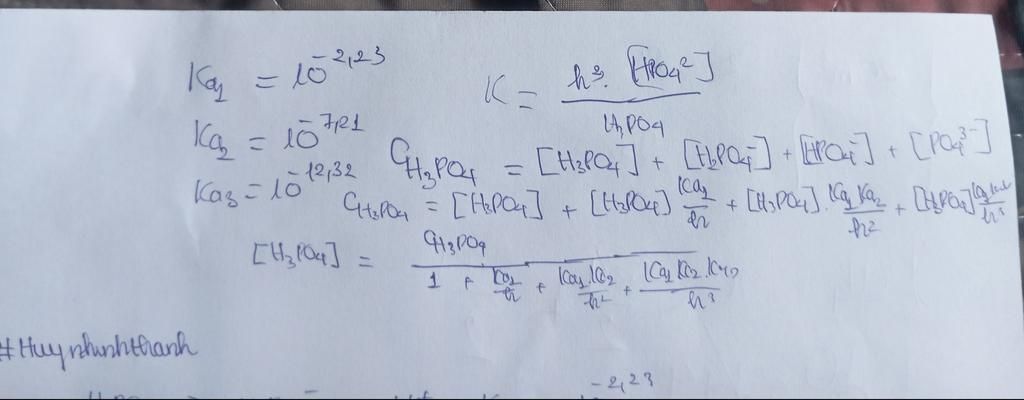 Ka₁ = 10^-2,23
K = h². [HPO4²] / H3PO4
Ka₂ = 10^-7,21
C_H3PO4 = [H3PO4] + [H2PO4^-] + [HPO4^-] + [PO4^3-]
Ka3 = 10^-12,32
C_H3PO4 = [H3PO4] + [H3PO4] Ka₁/h + [H3PO4] . Ka₁ Ka₂/h² + [H3PO4]
[H3PO4] = C_H3PO4 / 1 + Ka₁/h + Ka₁.Ka₂/h² + Ka₁ Ka₂ .Ka₃/h³
#Huynhnhthanh
-2,23